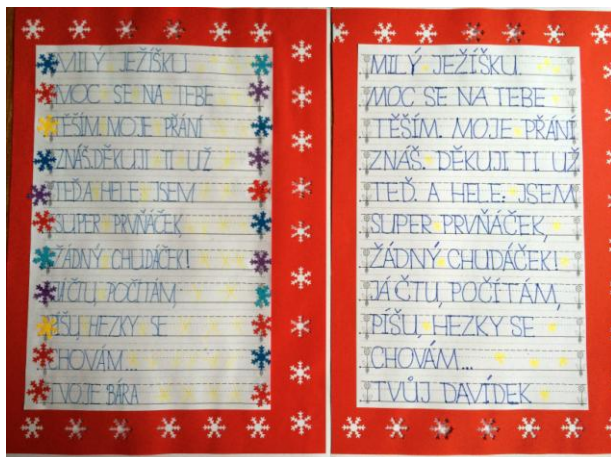 MILÝ JEŽÍŠKU.
MOC SE NA TEBE
TĚŠÍM. MOJE PŘÁNÍ
ZNÁŠ. DĚKUJI TI UŽ
TEĎ. A HELE: JSEM
SUPER PRVŇÁČEK,
ŽÁDNÝ CHUDÁČEK!
JÁ ČTU, POČÍTÁM,
PÍŠU, HEZKY SE
CHOVÁM...
TVOJE BÁRA
MILÝ JEŽÍŠKU.
MOC SE NA TEBE
TĚŠÍM. MOJE PŘÁNÍ
ZNÁŠ. DĚKUJI TI UŽ
TEĎ. A HELE: JSEM
SUPER PRVŇÁČEK,
ŽÁDNÝ CHUDÁČEK!
JÁ ČTU, POČÍTÁM,
PÍŠU, HEZKY SE
CHOVÁM...
TVŮJ DAVÍDEK